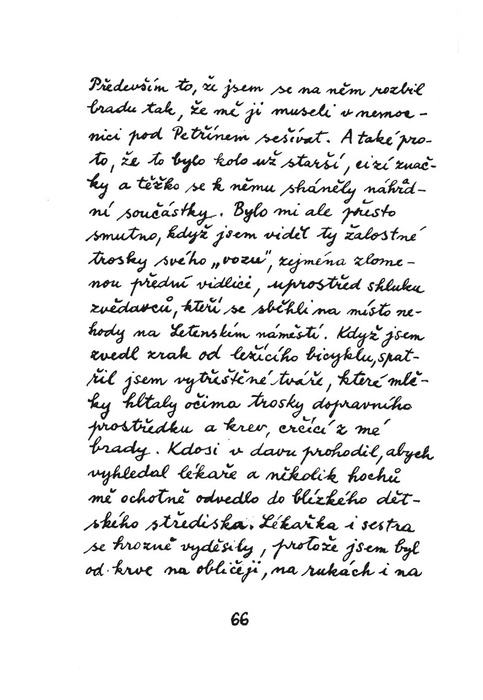 Především to, že jsem se na něm rozbil
bradu tak, že mě ji museli v nemoc-
nici pod Petřínem sešívat. A také pro-
to, že to bylo kolo už starší, cizí znač-
ky a těžko se k němu sháněly náhrad-
ní součástky. Bylo mi ale přesto
smutno, když jsem viděl ty žalostné
trosky svého „vozu", zejména zlome-
nou přední vidlici, uprostřed shluku
zvědavců, kteří se sběhli na místo ne-
hody na Letenském náměstí. Když jsem
zvedl zrak od ležícího bicyklu, spat-
řil jsem vytřeštěné tváře, které mlč-
ky hltaly očima trosky dopravního
prostředku a krev, crčící z mé
brady. Kdosi v davu prohodil, abych
vyhledal lékaře a několik hochů
mě ochotně odvedlo do blízkého dět-
ského střediska. Lékařka i sestra
se hrozně vyděsily, protože jsem byl
od krve na obličeji, na rukách i na
66